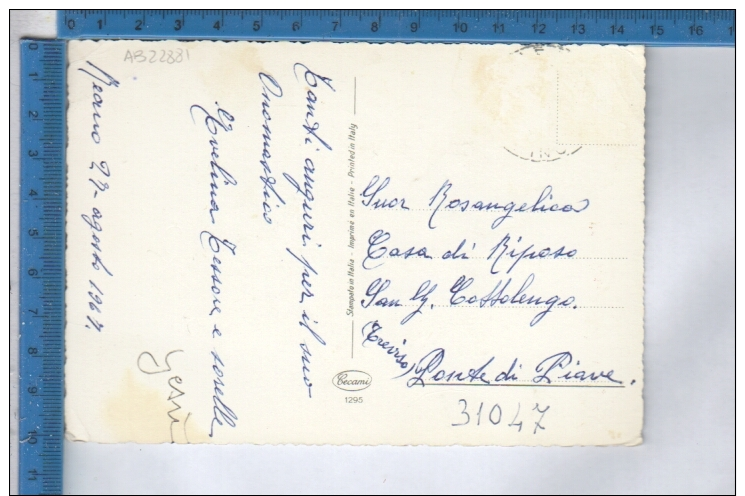 AB22881
Tanti auguri per il suo
Onomastico
Evelina Tessore e sorelle
27 - agosto 1967.
Stampato in Italia - Imprimé en Italie - Printed in Italy
Cecami
1295
Suor Rosangelica
Casa di Riposo
San G. Cottolengo.
(Treviso)
Ponte di Piave.
31047
0 1 2 3 4 5 6 7 8 9 10 11 12 13 14 15 16 17
0 1 2 3 4 5 6 7 8 9 10 11